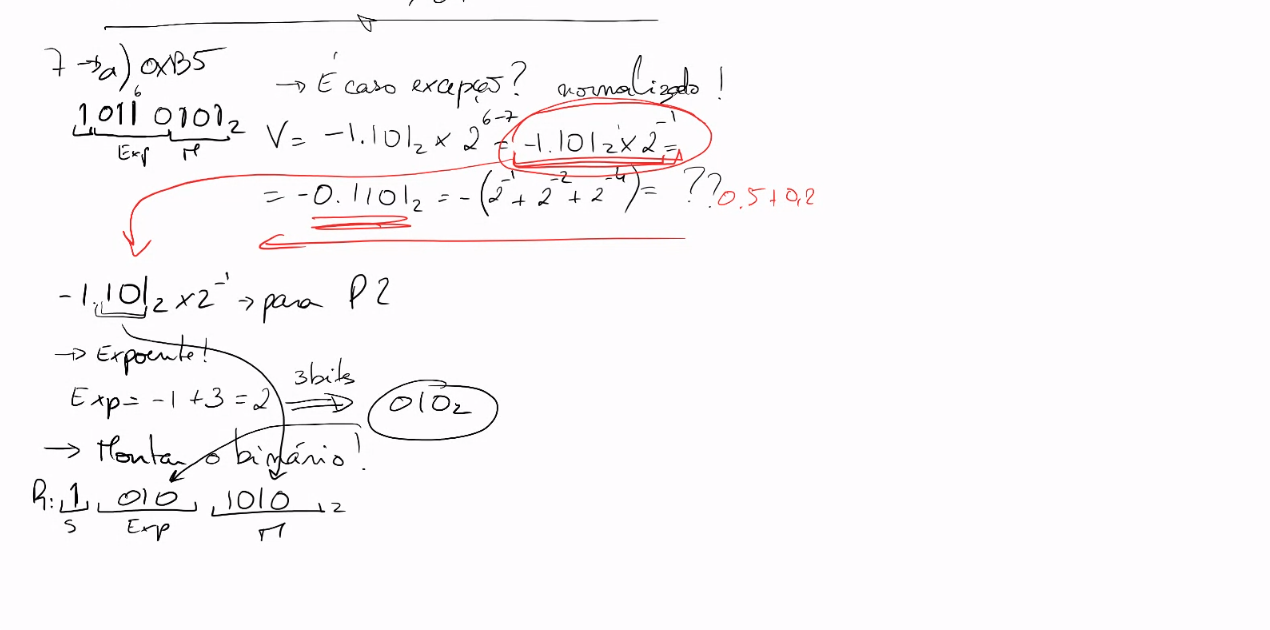 7 → a) 0xB5
→ É caso excepção? normalizado!
6
1011 0101₂
Exp M
V = -1.101₂ × 2⁶⁻⁷ = -1.101₂ × 2⁻¹ =
= -0.1101₂ = -(2⁻¹ + 2⁻² + 2⁻⁴) = ?? 0.5+0,2
-1.101₂ × 2⁻¹ → para P2
→ Expoente!
Exp = -1 + 3 = 2 ⇒ 3 bits 010₂
→ Montar o binário!
R: 1 010 1010 ₂
S Exp M